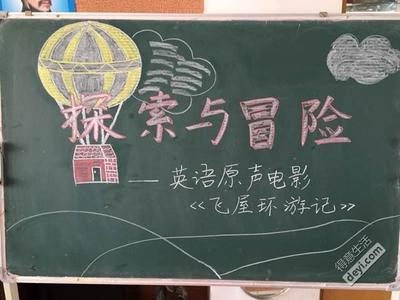 探索与冒险
——英语原声电影
《飞屋环游记》
得意生活
deyi.com